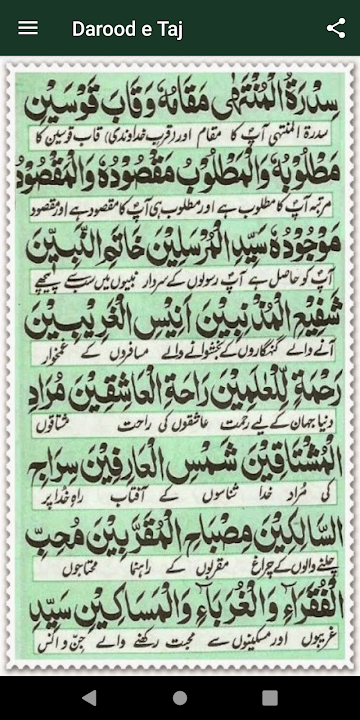 Darood e Taj
سِدْرَةُ الْمُنْتَهٰى مَقَامُهٗ وَقَابَ قَوْسَيْنِ
سدرۃ المنتہی آپؐ کا مقام اور (قرب خداوندی) قاب قوسین کا
مَطْلُوْبُهٗ وَالْمَطْلُوْبُ مَقْصُوْدُهٗ وَالْمَقْصُوْدُ
مرتبہ آپؐ کا مطلوب ہے اور مطلوب ہی آپؐ کا مقصود ہے اور مقصود
مَوْجُوْدُهٗ سَيِّدِ الْمُرْسَلِيْنَ خَاتِمِ النَّبِيِّيْنَ
آپؐ کو حاصل ہے آپؐ رسولوں کے سردار نبیوں میں سب سے پیچھے
شَفِيْعِ الْمُذْنِبِيْنَ اَنِيْسِ الْغَرِيْبِيْنَ
آنے والے گنہگاروں کے بخشوانے والے مسافروں کے غمخوار
رَحْمَةٍ لِّلْعٰلَمِيْنَ رَاحَةِ الْعَاشِقِيْنَ مُرَادِ
دنیا جہان کے لیے رحمت عاشقوں کی راحت مشتاقوں
الْمُشْتَاقِيْنَ شَمْسِ الْعَارِفِيْنَ سِرَاجِ
کی مُراد خدا شناسوں کے آفتاب راہِ خدا پر
السَّالِكِيْنَ مِصْبَاحِ الْمُقَرَّبِيْنَ مُحِبِّ
چلنے والوں کے چراغ مقربوں کے راہنما محتاجوں
الْفُقَرَآءِ وَالْغُرَبَآءِ وَالْمَسَاكِيْنِ سَيِّدِ
غریبوں اور مسکینوں سے محبت رکھنے والے جنّ و انس